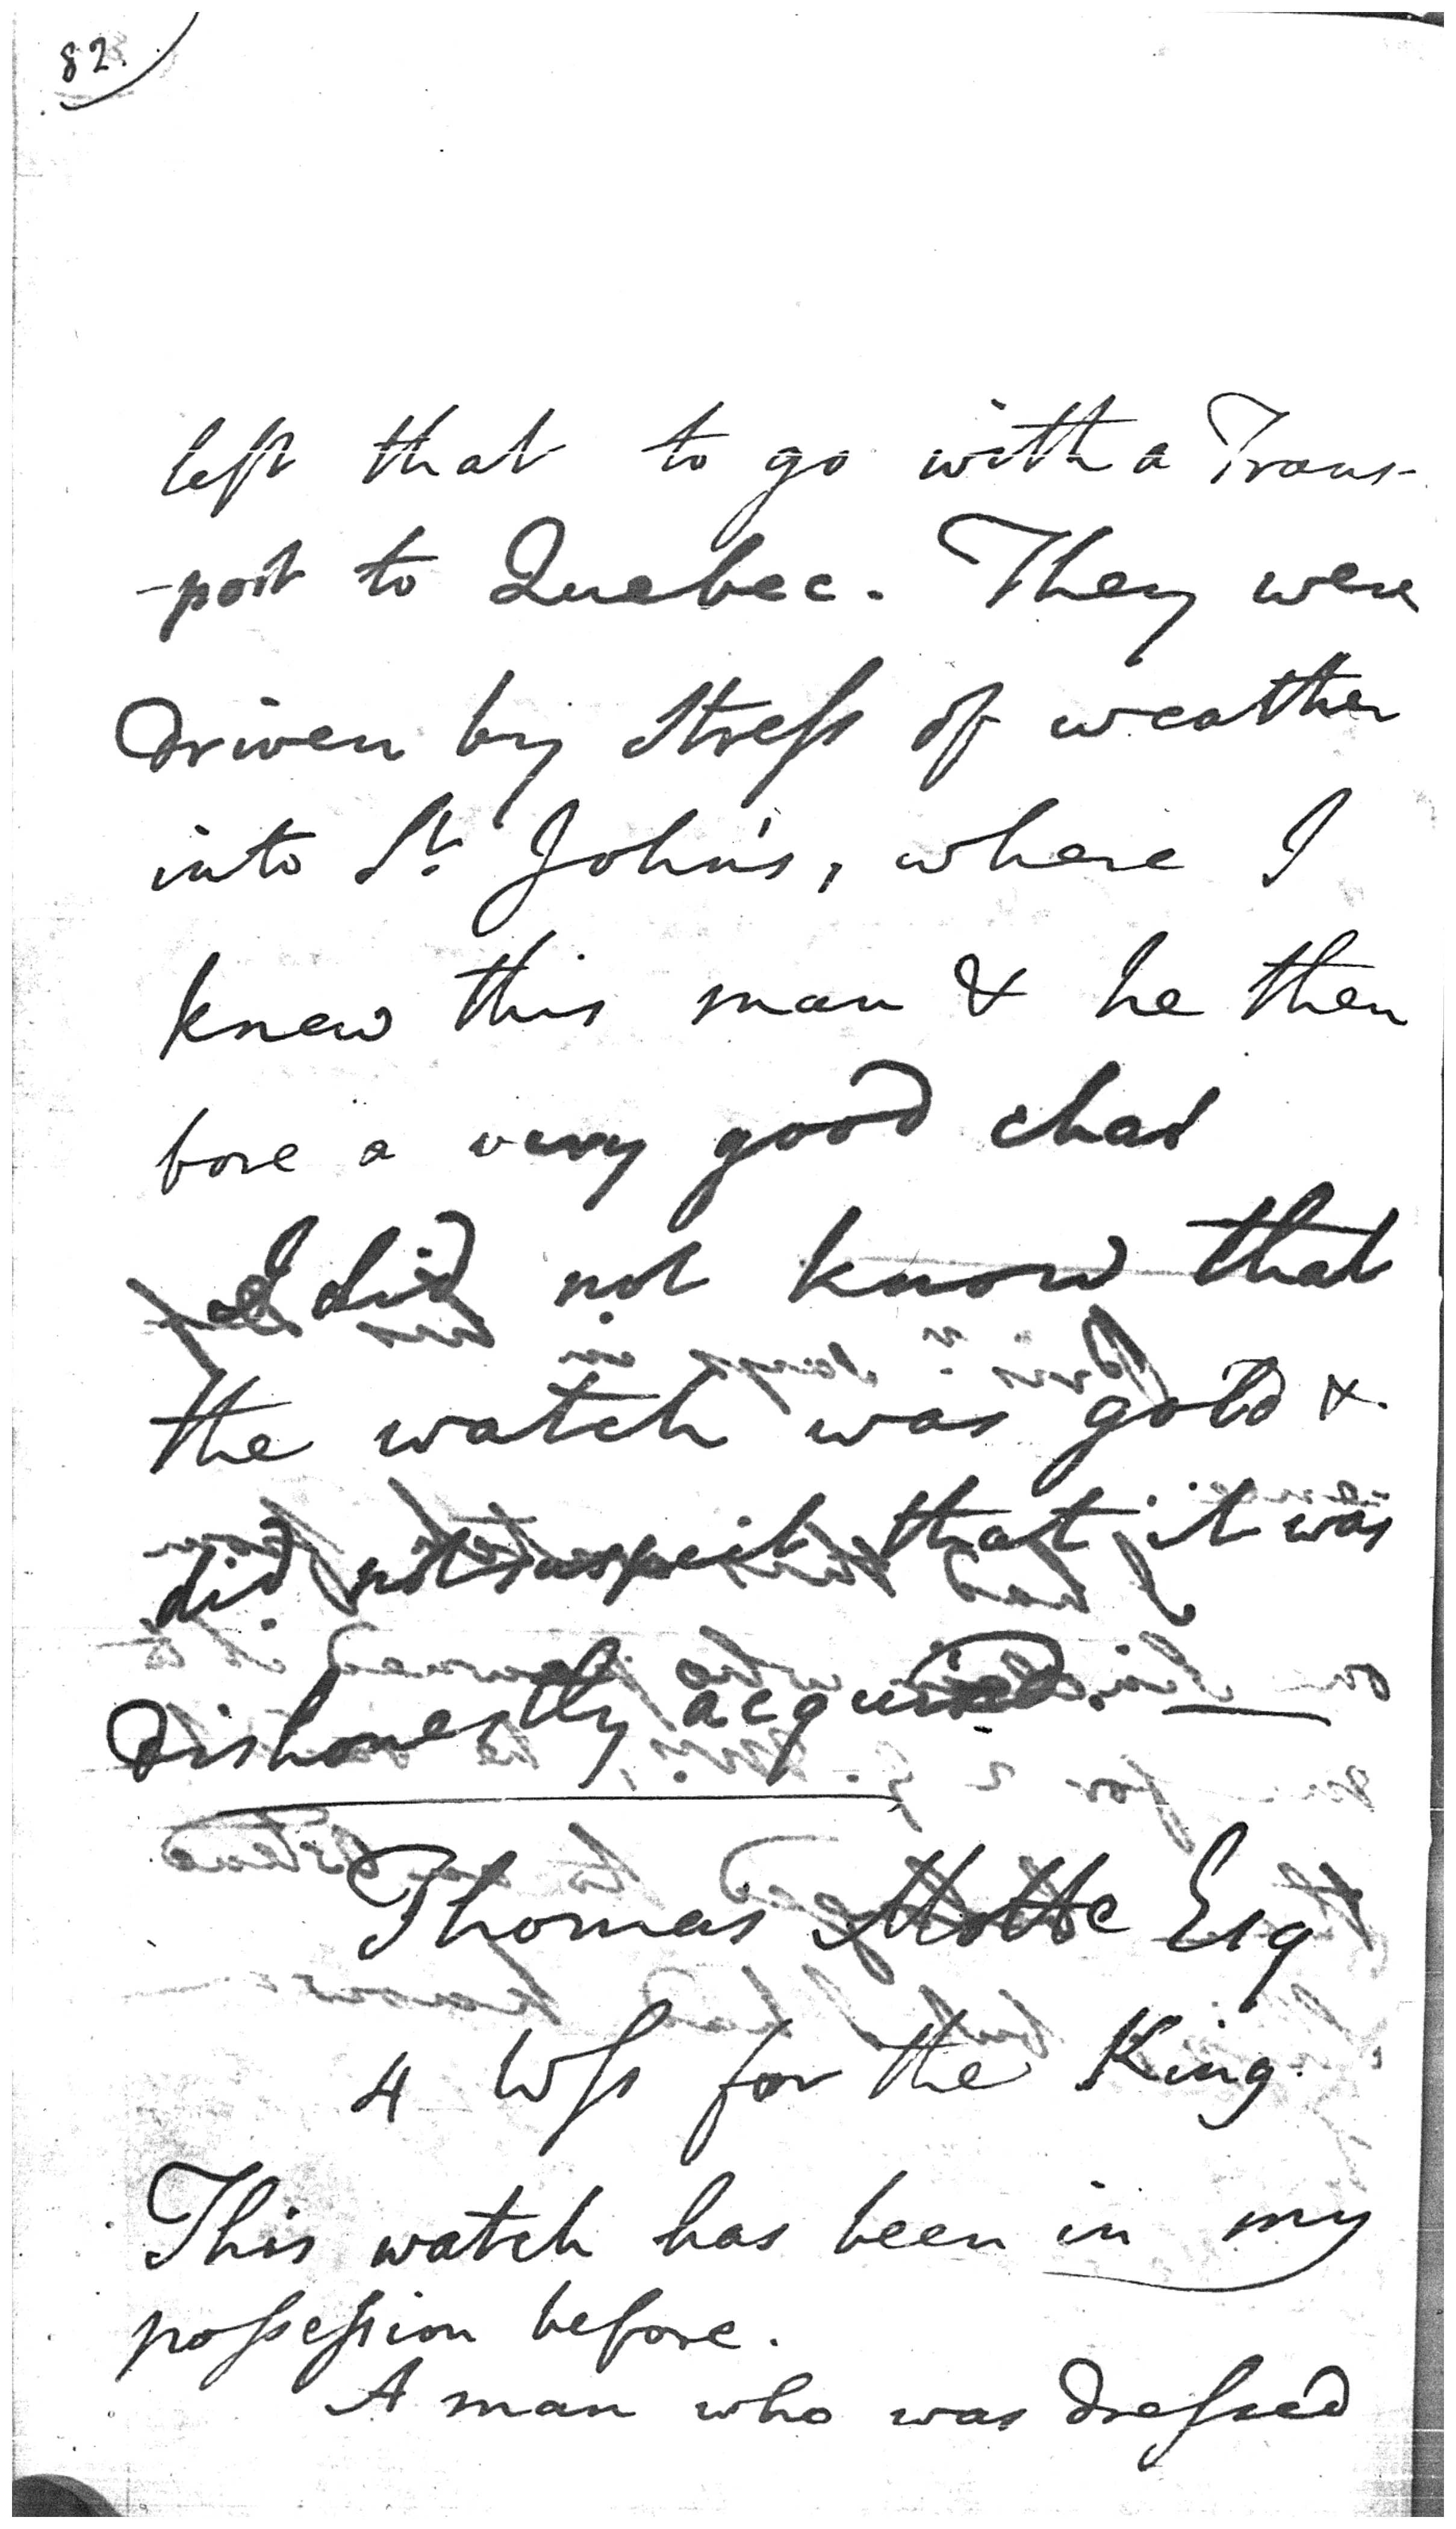 82.
left that to go with a Trans-
-port to Quebec. They were
driven by stress of weather
into St. John's, where I
knew this man & he then
bore a very good char
I did not know that
the watch was gold &
did not suspect that it was
dishonestly acquired. —
Thomas Motte Esq
4 Wss for the King.
This watch has been in my
possession before.
A man who was dressed